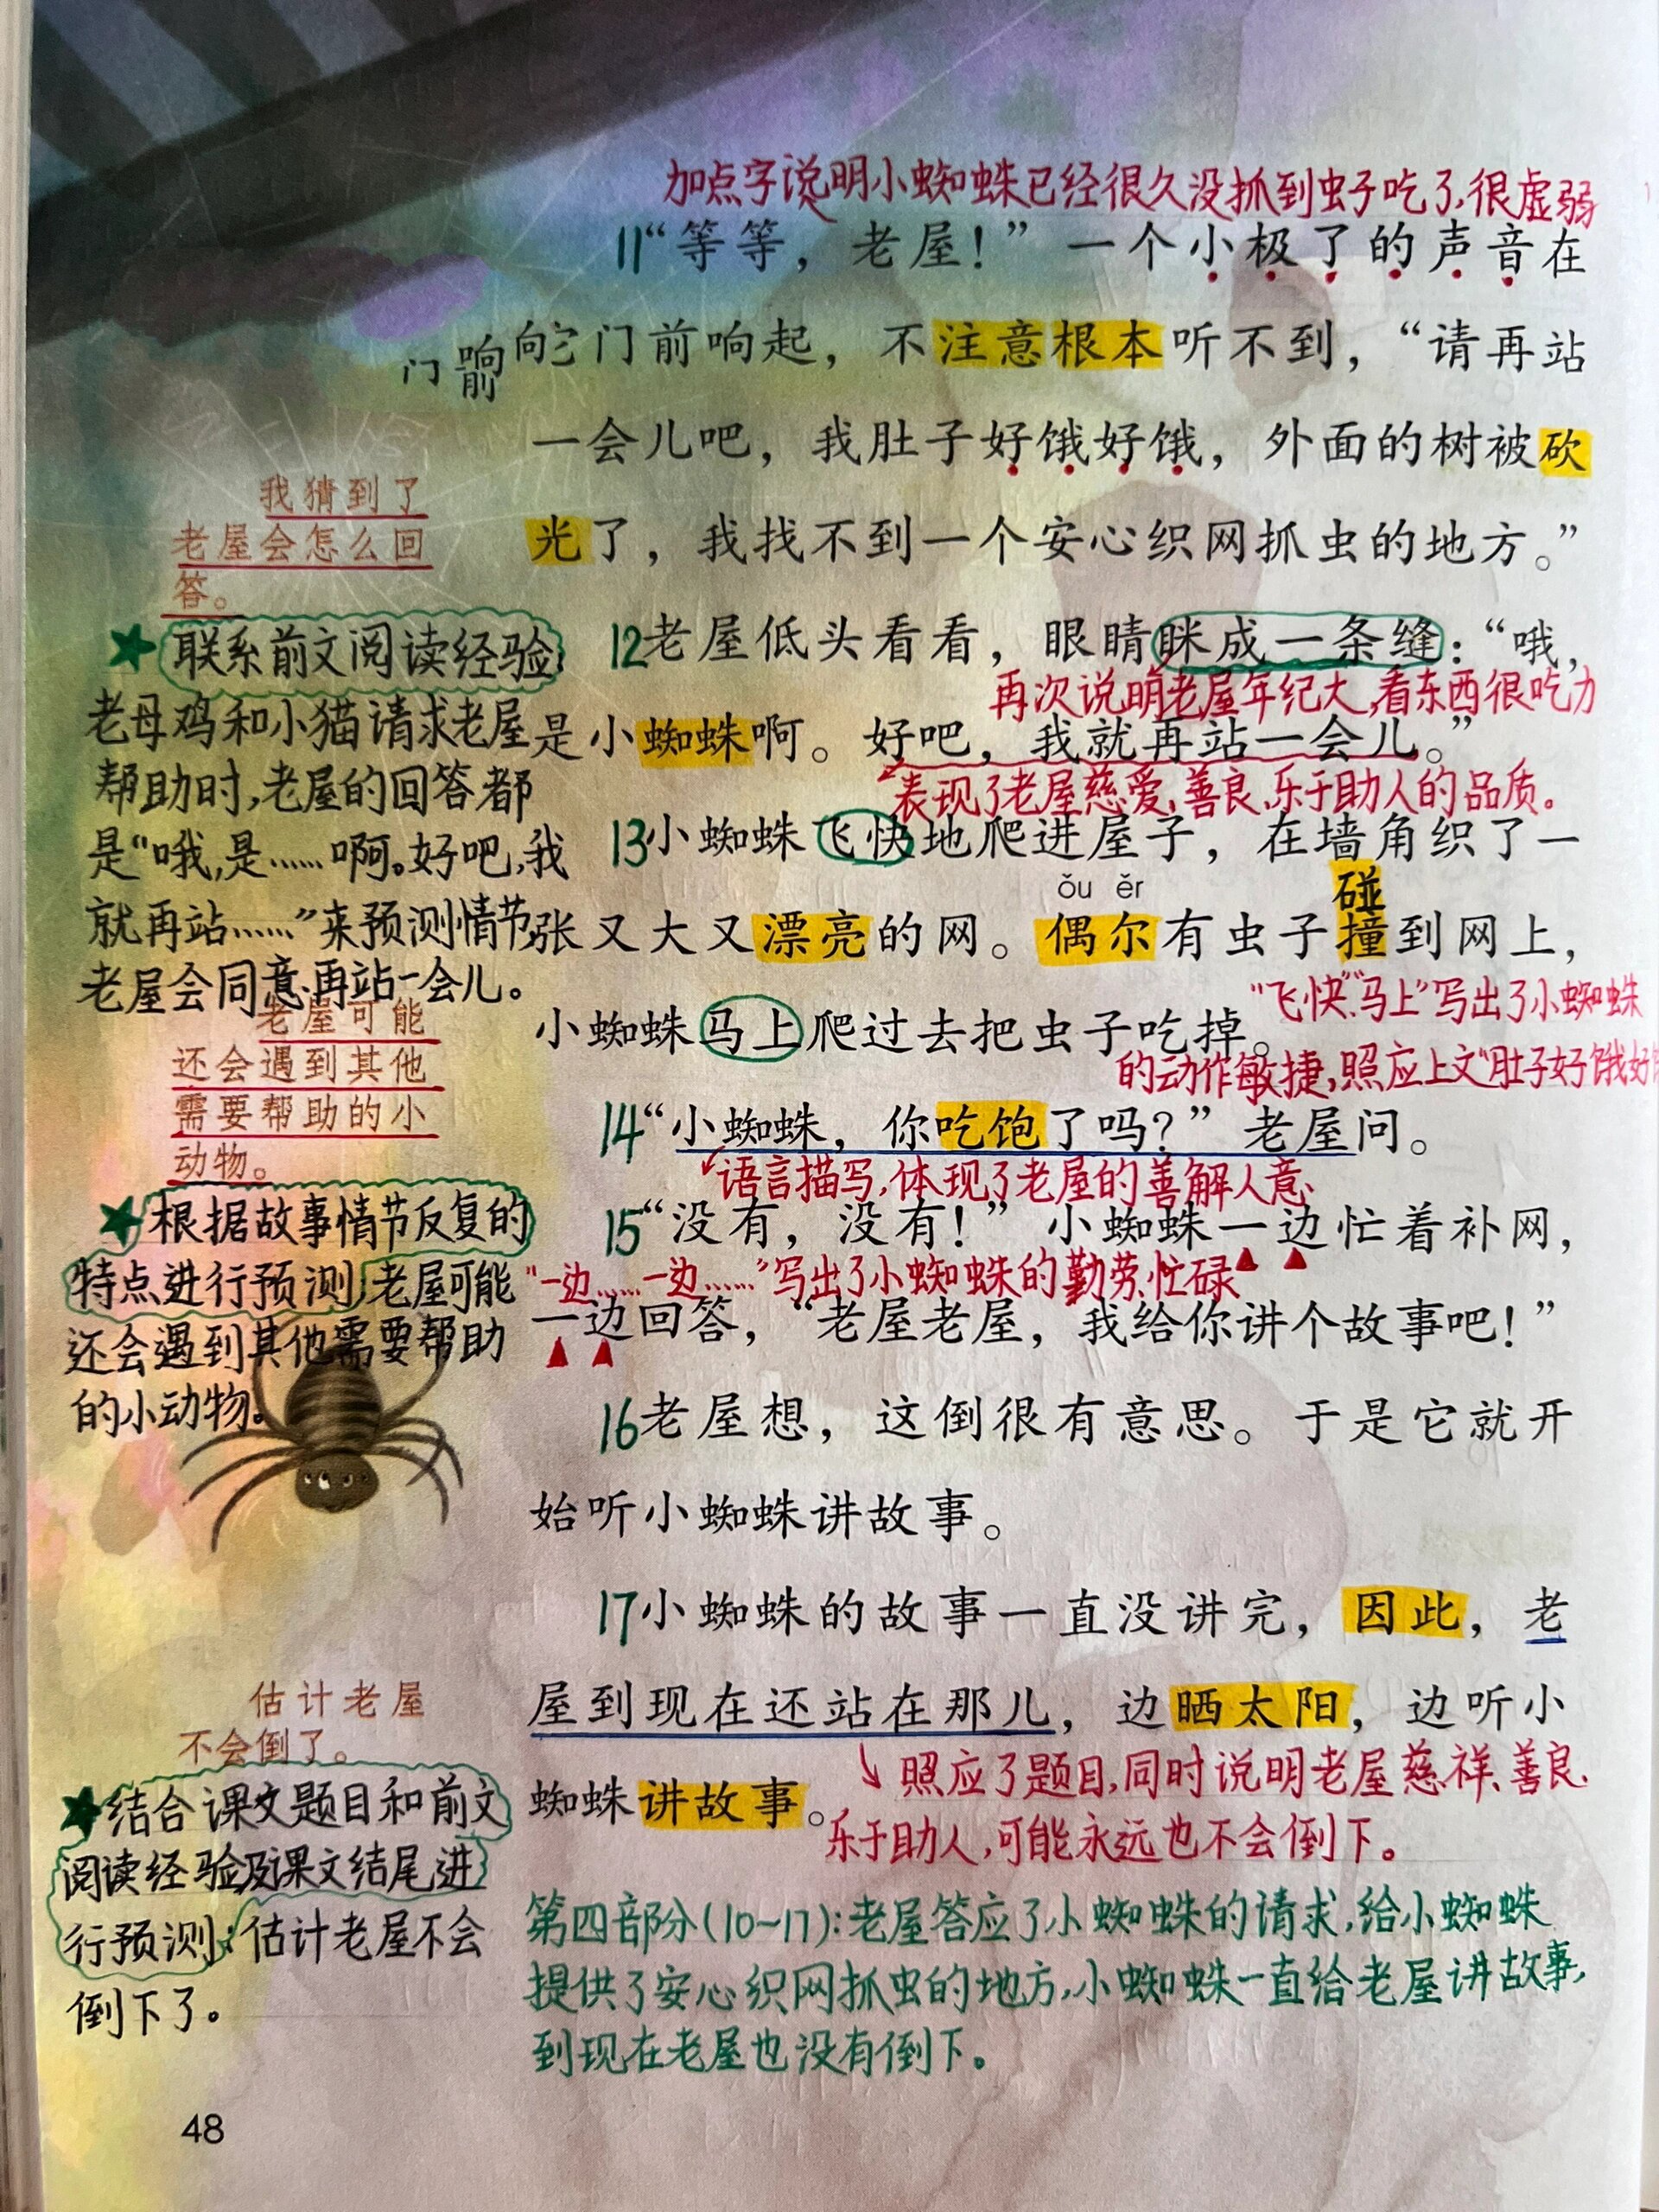 加点字说明小蜘蛛已经很久没抓到虫子吃了,很虚弱
11“等等，老屋！”一个小极了的声音在
它门前响起，不注意根本听不到，“请再站
一会儿吧，我肚子好饿好饿，外面的树被砍
光了，我找不到一个安心织网抓虫的地方。”
我猜到了
老屋会怎么回
答。
★联系前文阅读经验
老母鸡和小猫请求老屋
帮助时,老屋的回答都
是“哦,是……啊。好吧,我
就再站……”来预测情节,
老屋会同意再站一会儿。
12老屋低头看看，眼睛眯成一条缝：“哦，
再次说明老屋年纪大,看东西很吃力
是小蜘蛛啊。好吧，我就再站一会儿。”
表现了老屋慈爱、善良、乐于助人的品质。
13小蜘蛛飞快地爬进屋子，在墙角织了一
ǒu ěr
碰
张又大又漂亮的网。偶尔有虫子撞到网上，
“飞快”“马上”写出了小蜘蛛
小蜘蛛马上爬过去把虫子吃掉。
的动作敏捷,照应上文“肚子好饿好
老屋可能
还会遇到其他
需要帮助的小
动物。
★根据故事情节反复的
特点进行预测:老屋可能
还会遇到其他需要帮助
的小动物。
14“小蜘蛛，你吃饱了吗？”老屋问。
语言描写,体现了老屋的善解人意、
15“没有，没有！”小蜘蛛一边忙着补网，
“一边……一边……”写出了小蜘蛛的勤劳、忙碌
一边回答，“老屋老屋，我给你讲个故事吧！”
16老屋想，这倒很有意思。于是它就开
始听小蜘蛛讲故事。
17小蜘蛛的故事一直没讲完，因此，老
屋到现在还站在那儿，边晒太阳，边听小
照应了题目,同时说明老屋慈祥、善良、
蜘蛛讲故事。
乐于助人,可能永远也不会倒下。
估计老屋
不会倒了。
★结合课文题目和前文
阅读经验及课文结尾进
行预测:估计老屋不会
倒下了。
第四部分(10~17):老屋答应了小蜘蛛的请求,给小蜘蛛
提供了安心织网抓虫的地方,小蜘蛛一直给老屋讲故事,
到现在老屋也没有倒下。
48